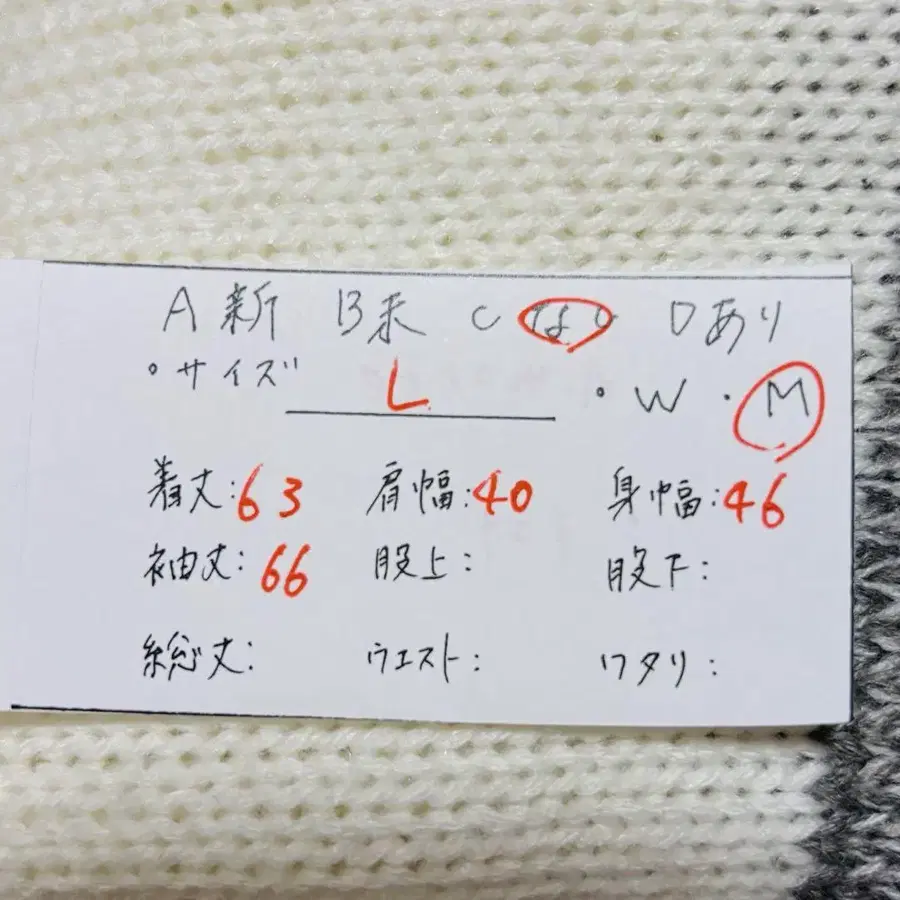 A 新 B未 C なし Dあり
• サイズ L • W • M
着丈:63 肩幅:40 身幅:46
袖丈:66 股上: 股下:
総丈: ウエスト: ワタリ: